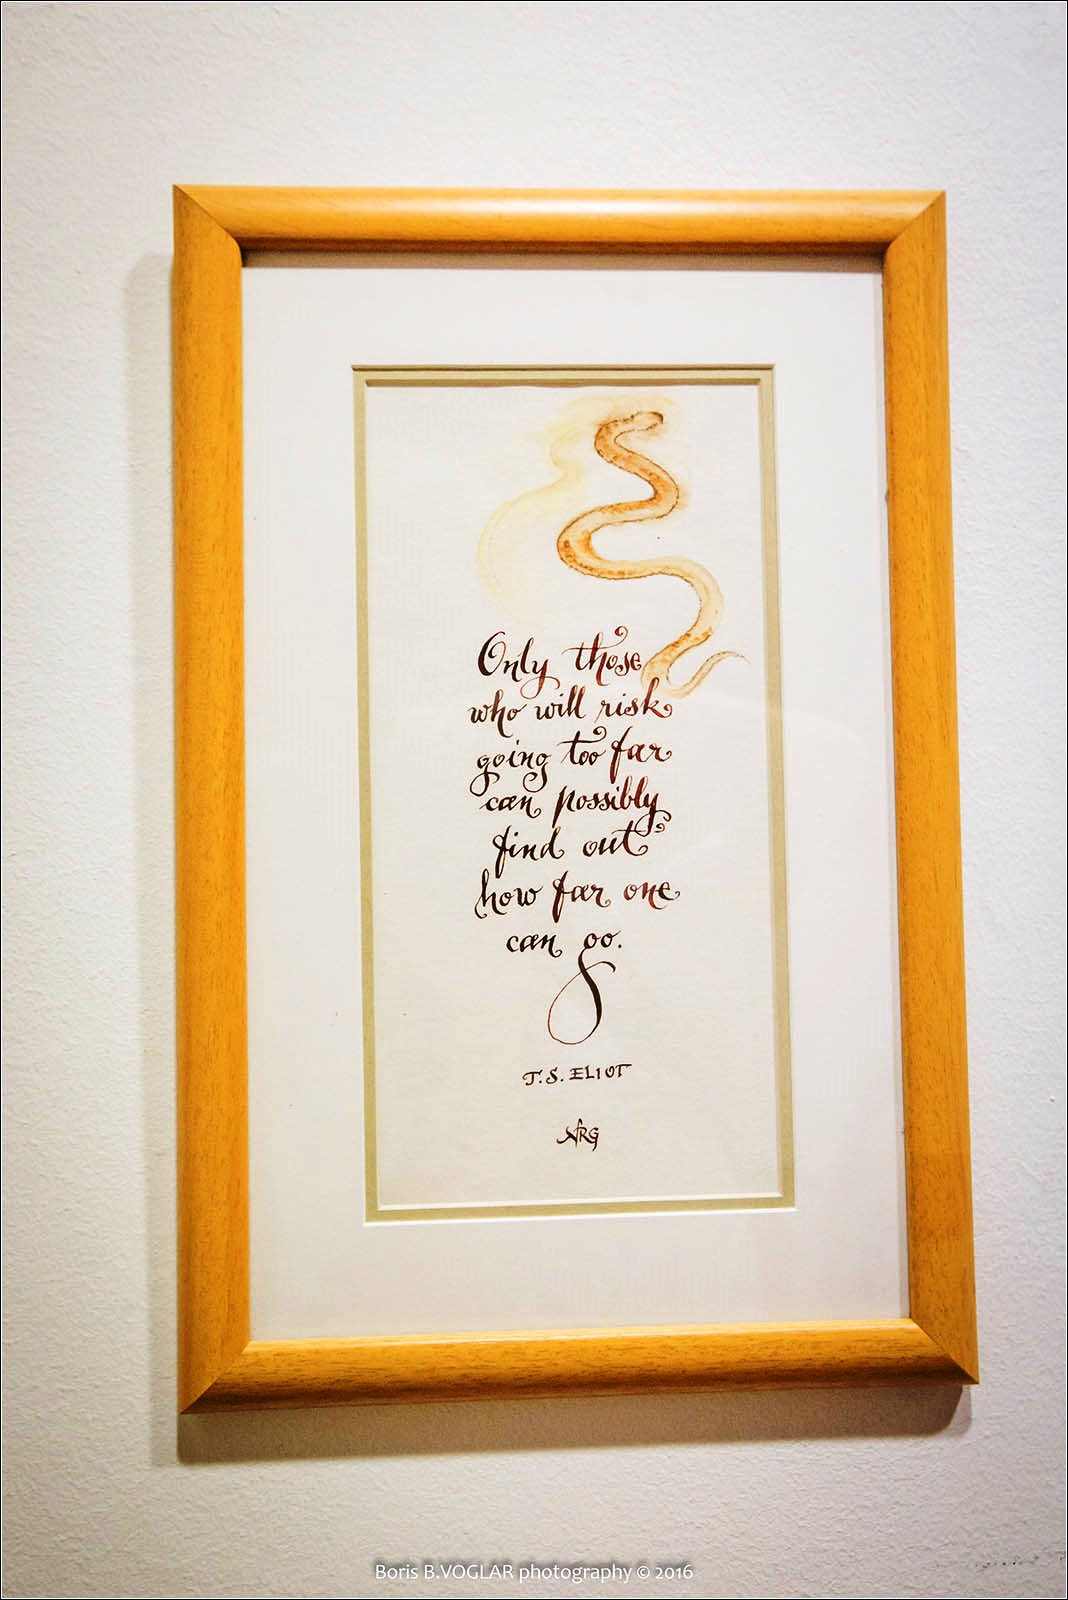 Only those
who will risk
going too far
can possibly
find out
how far one
can go.
T.S. ELIOT
Boris B.VOGLAR photography © 2016